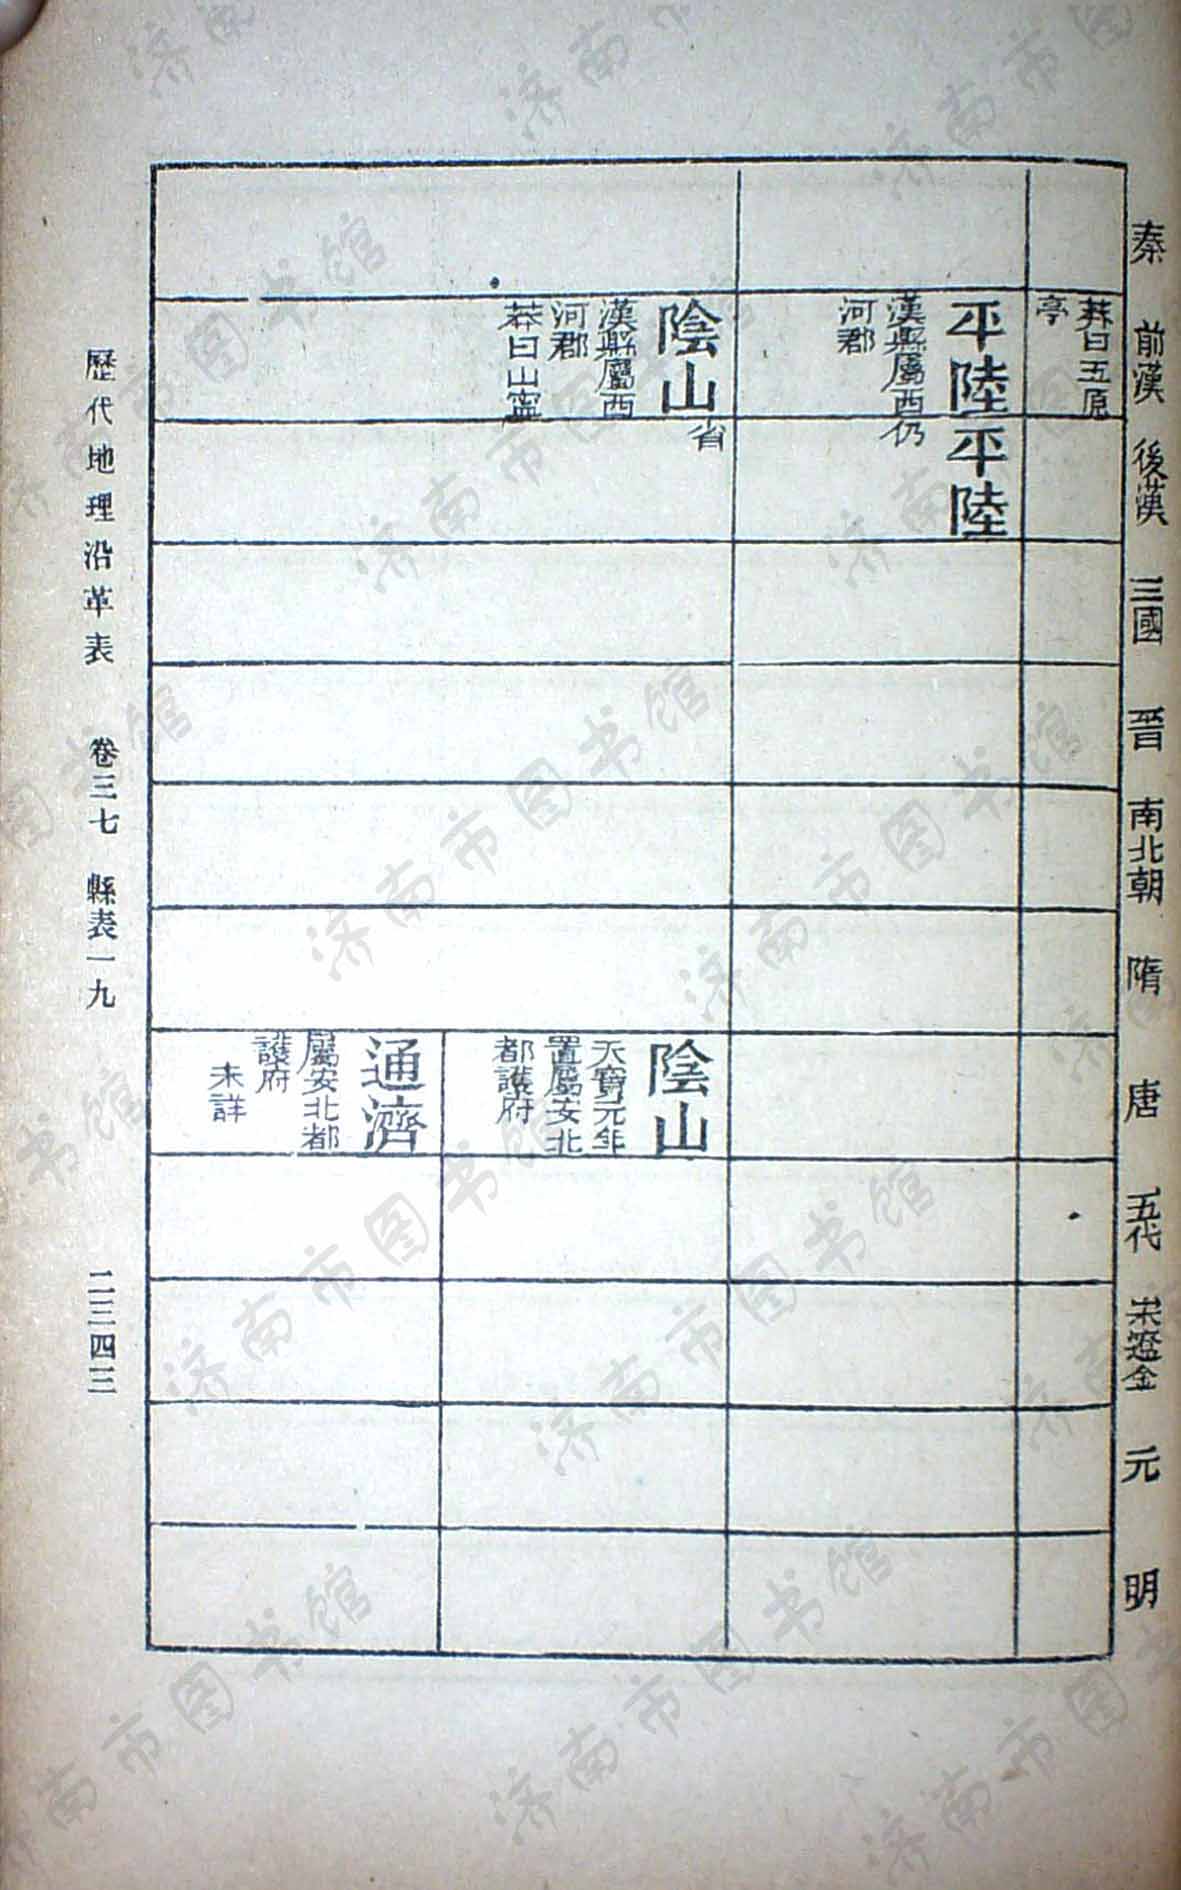 秦
前漢
後漢
三國
晉
南北朝
隋
唐
五代
宋遼金
元
明
莽曰五原
亭
平陸
漢縣屬西
河郡
平陸
仍
陰山
漢縣屬西
河郡
莽曰山寧
省
陰山
天寶元年
置屬安北
都護府
通濟
屬安北都
護府
未詳
歷代地理沿革表 卷三七 縣表一九 二三四三
济南市图书馆